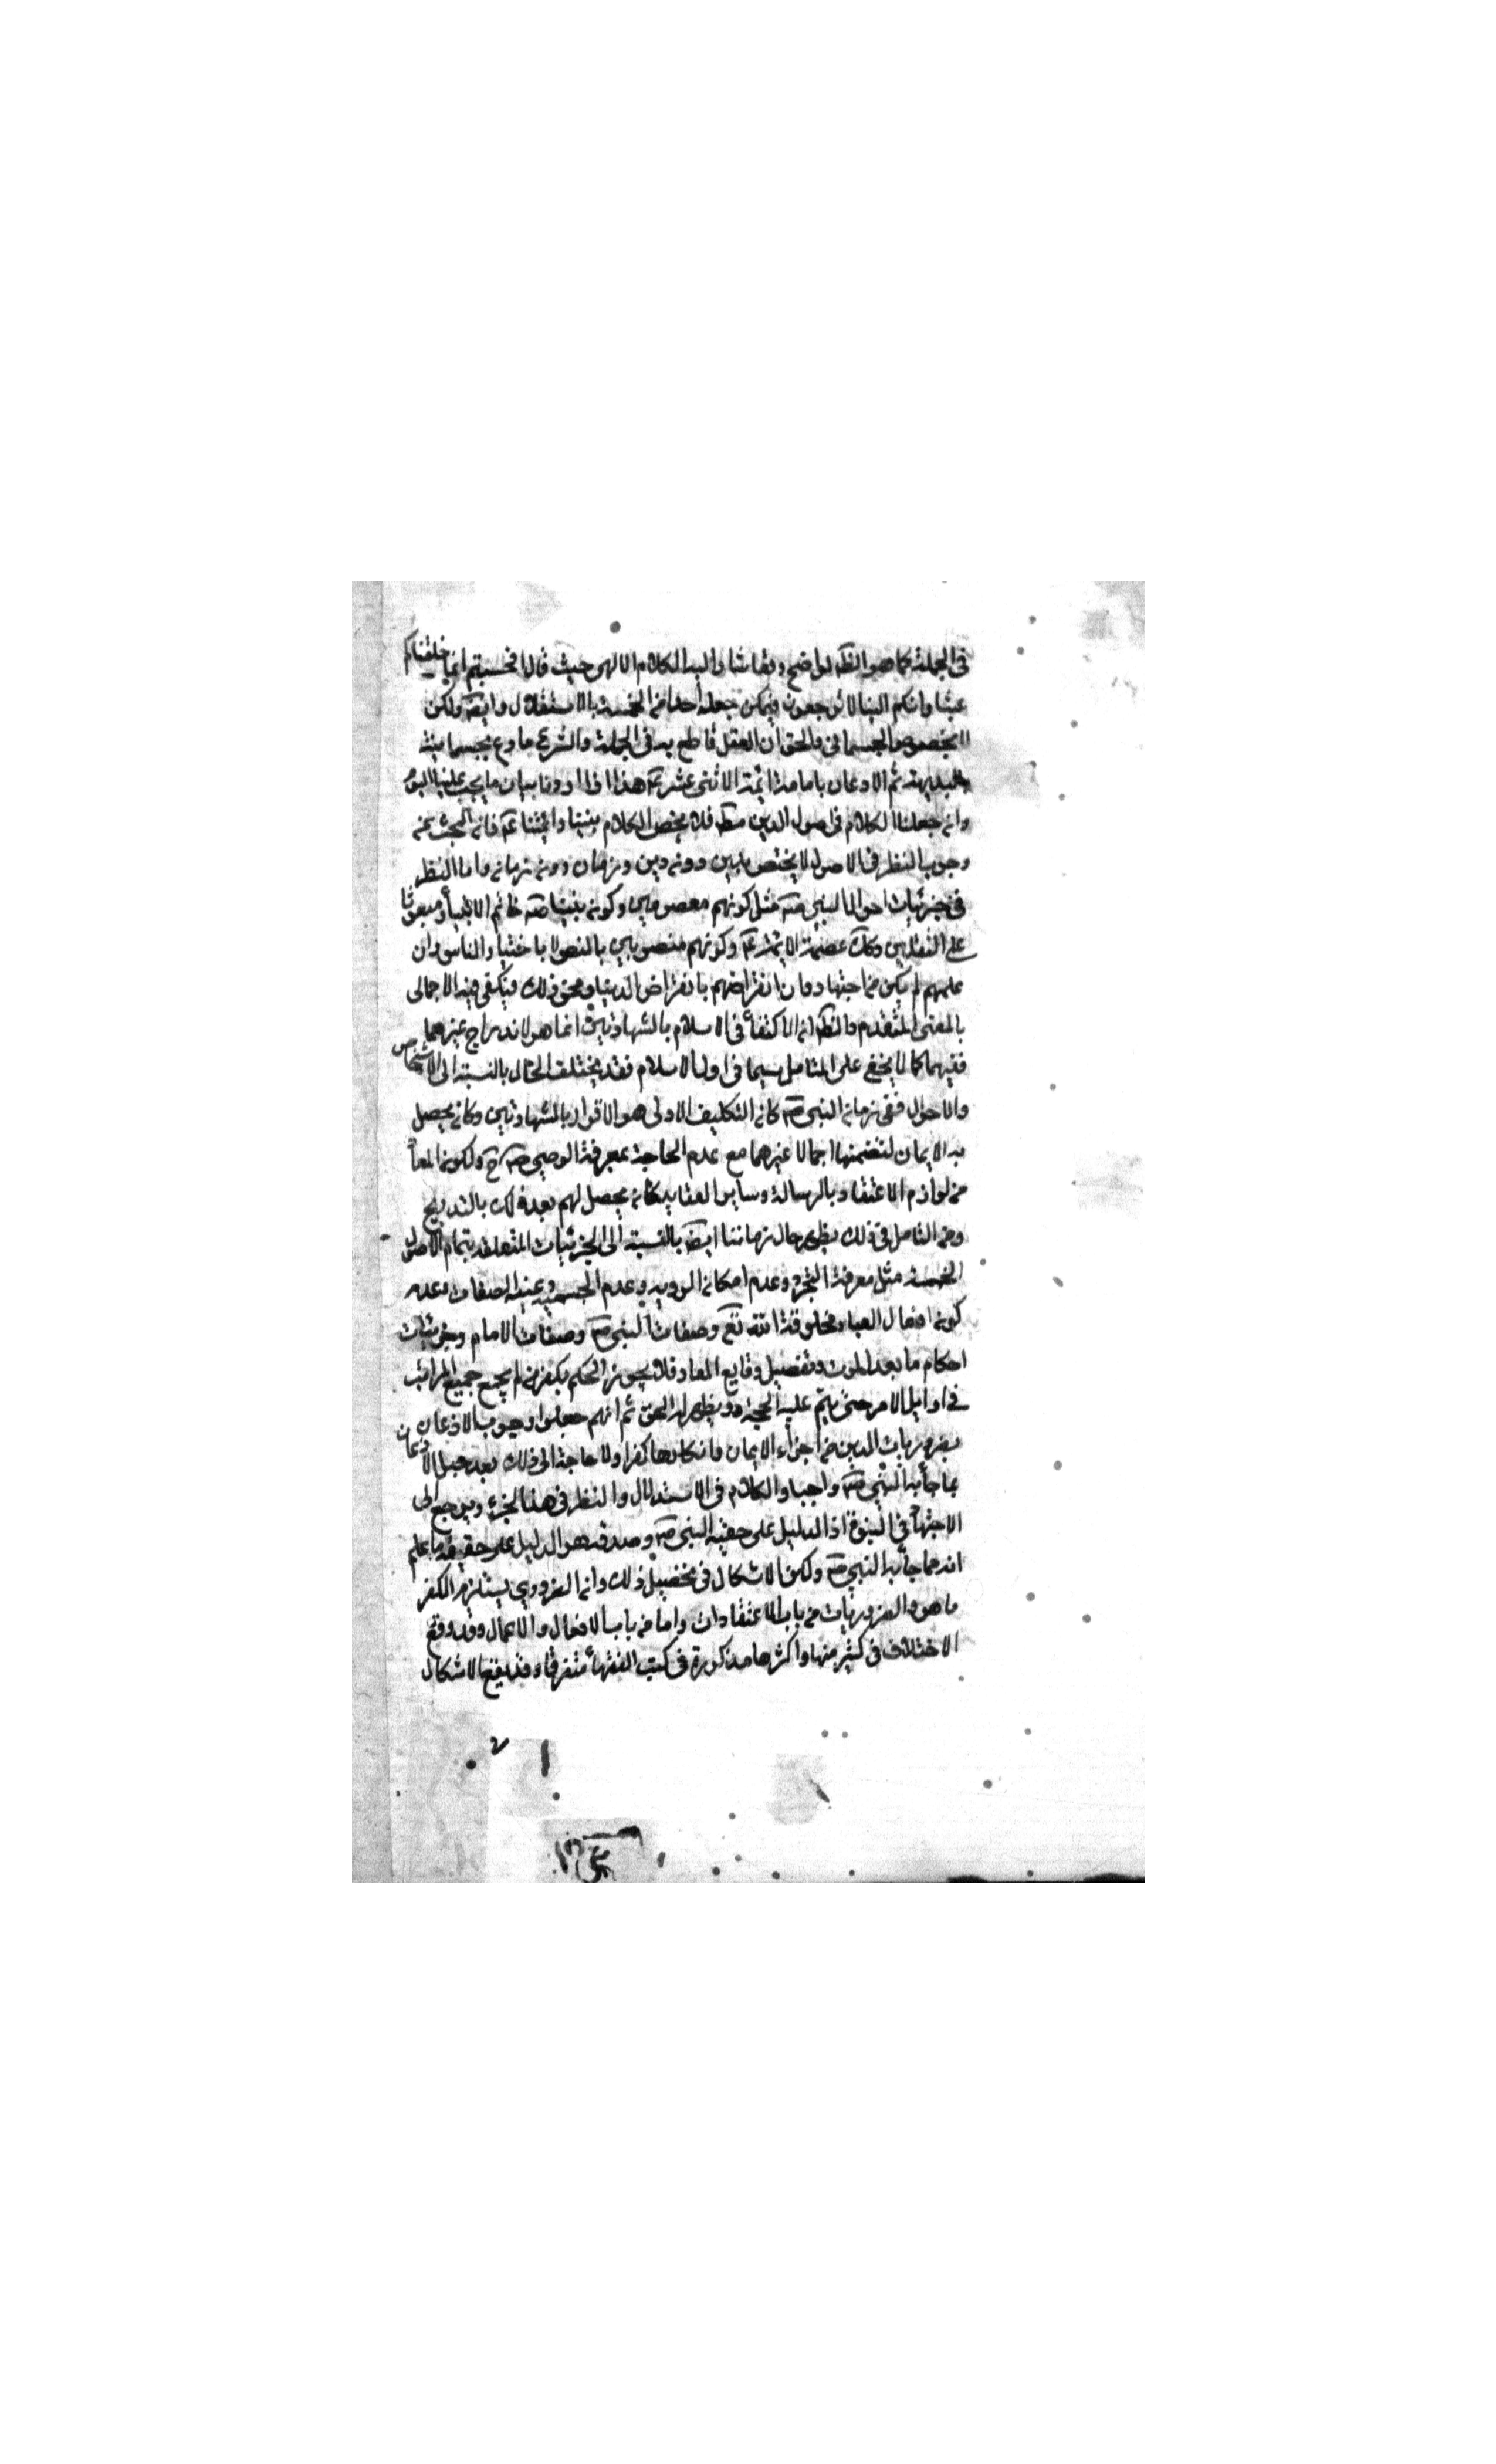 في الجملة كما هو الظ الواضح وقد اشار اليه الكلام الالهي حيث قال افحسبتم انما خلقناكم
عبثا وانكم الينا لا ترجعون فيمكن جعله احدا من الخمسة بالاستقلال وايضا ولكن
لا بخصوص الجسماني والحق ان العقل قاطع به في الجملة والشرع صادع بجسمانيته
بالبديهة ثم الاذعان بامامة ائمة الاثنى عشر ع هذا اذا اردنا بيان ما يجب علينا اليوم
وان جعلنا الكلام في اصول الدين مط فلا يختص الكلام بنبينا وائمتنا ع فان البحث عن
وجوب النظر في الاصول لا يختص بدين دون دين وزمان دون زمان واما النظر
في جزئيات احوال النبي ص مثل كونهم معصومين وكون نبينا ص خاتم الانبياء ومبعوثا
على الثقلين وكك عصمة الائمة ع وكونهم منصوبين بالنص لا باختيار الناس وان
علمهم لم يكن من اجتهاد وان انقراضهم بانقراض الدنيا ونحو ذلك فيكفي فيه الاجمالي
بالمعنى المتقدم والظ ان الاكتفاء في الاسلام بالشهادتين انما هو لاندراج غيرهما
فيهما كما لا يخفى على المتامل سيما في اول الاسلام فقد يختلف الحال بالنسبة الى الاشخاص
والاحوال ففي زمان النبي ص كان التكليف الاولى هو الاقرار بالشهادتين وكان يحصل
به الايمان لتضمنها اجمالا غيرهما مع عدم الحاجة بمعرفة الوصي ص ح ولكون المعاد
من لوازم الاعتقاد بالرسالة وساير العقايد كان يحصل لهم بعد ذلك بالتدريج
ومن التامل في ذلك يظهر حال زماننا ايضا بالنسبة الى الجزئيات المتعلقة بتمام الاصول
الخمسة مثل معرفة التجرد وعدم امكان الروية وعدم الجسمية وعينية الصفات وعدم
كون افعال العباد مخلوقة الله تع وصفات النبي ص وصفات الامام وجزئيات
احكام ما بعد الموت وتفصيل وقايع المعاد فلا يجوز الحكم بكفر من لم يجمع جميع المراتب
في اوايل الامر حتى يتم عليه الحجة ويظهر له الحق ثم انهم جعلوا وجوب الاذعان
بضروريات الدين من اجزاء الايمان وانكارها كفرا ولا حاجة الى ذلك بعد جعل الاذعان
بما جاء به النبي ص واجبا والكلام في الاستدلال والنظر في هذا الجزء ويرجع الى
الاجتهاد في النبوة اذ الدليل على حقية النبي ص وصدقه هو الدليل على حقيقة ما علم
انه مما جاء به النبي ص ولكن الاشكال في تحصيل ذلك وان الضروري يستلزم الكفر
ما هو والضروريات من باب الاعتقادات واما من باب الافعال والاعمال وقد وقع
الاختلاف في كثير منها واكثرها مذكورة في كتب الفقهاء متفرقا وقد يقع الاشكال